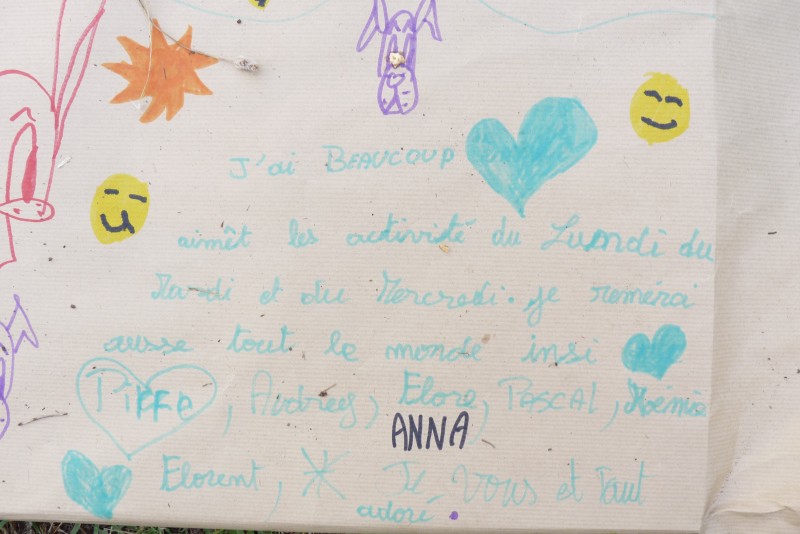 J'ai BEAUCOUP
aimêt les activité du Lumdi du
Mardi et du Mercredi. je remérai
ausse tout le monde insi
Pierre, Audrey, Elore, PASCAL, Noémie
ANNA
Elorent, Je vous et tout
adoré.